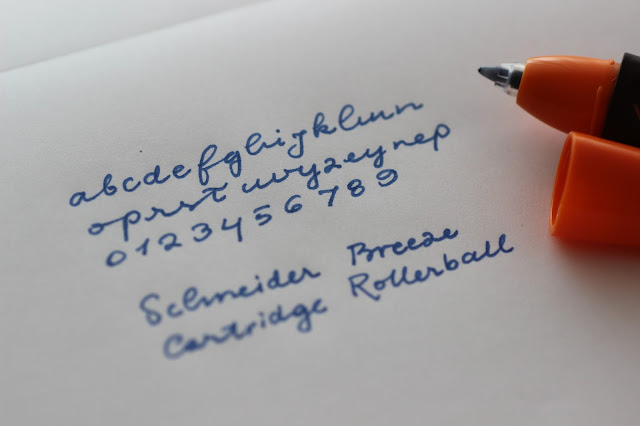 abcdefghijklmn
oprstuvyzeynep
0123456789
Schneider Breeze
Cartridge Rollerball